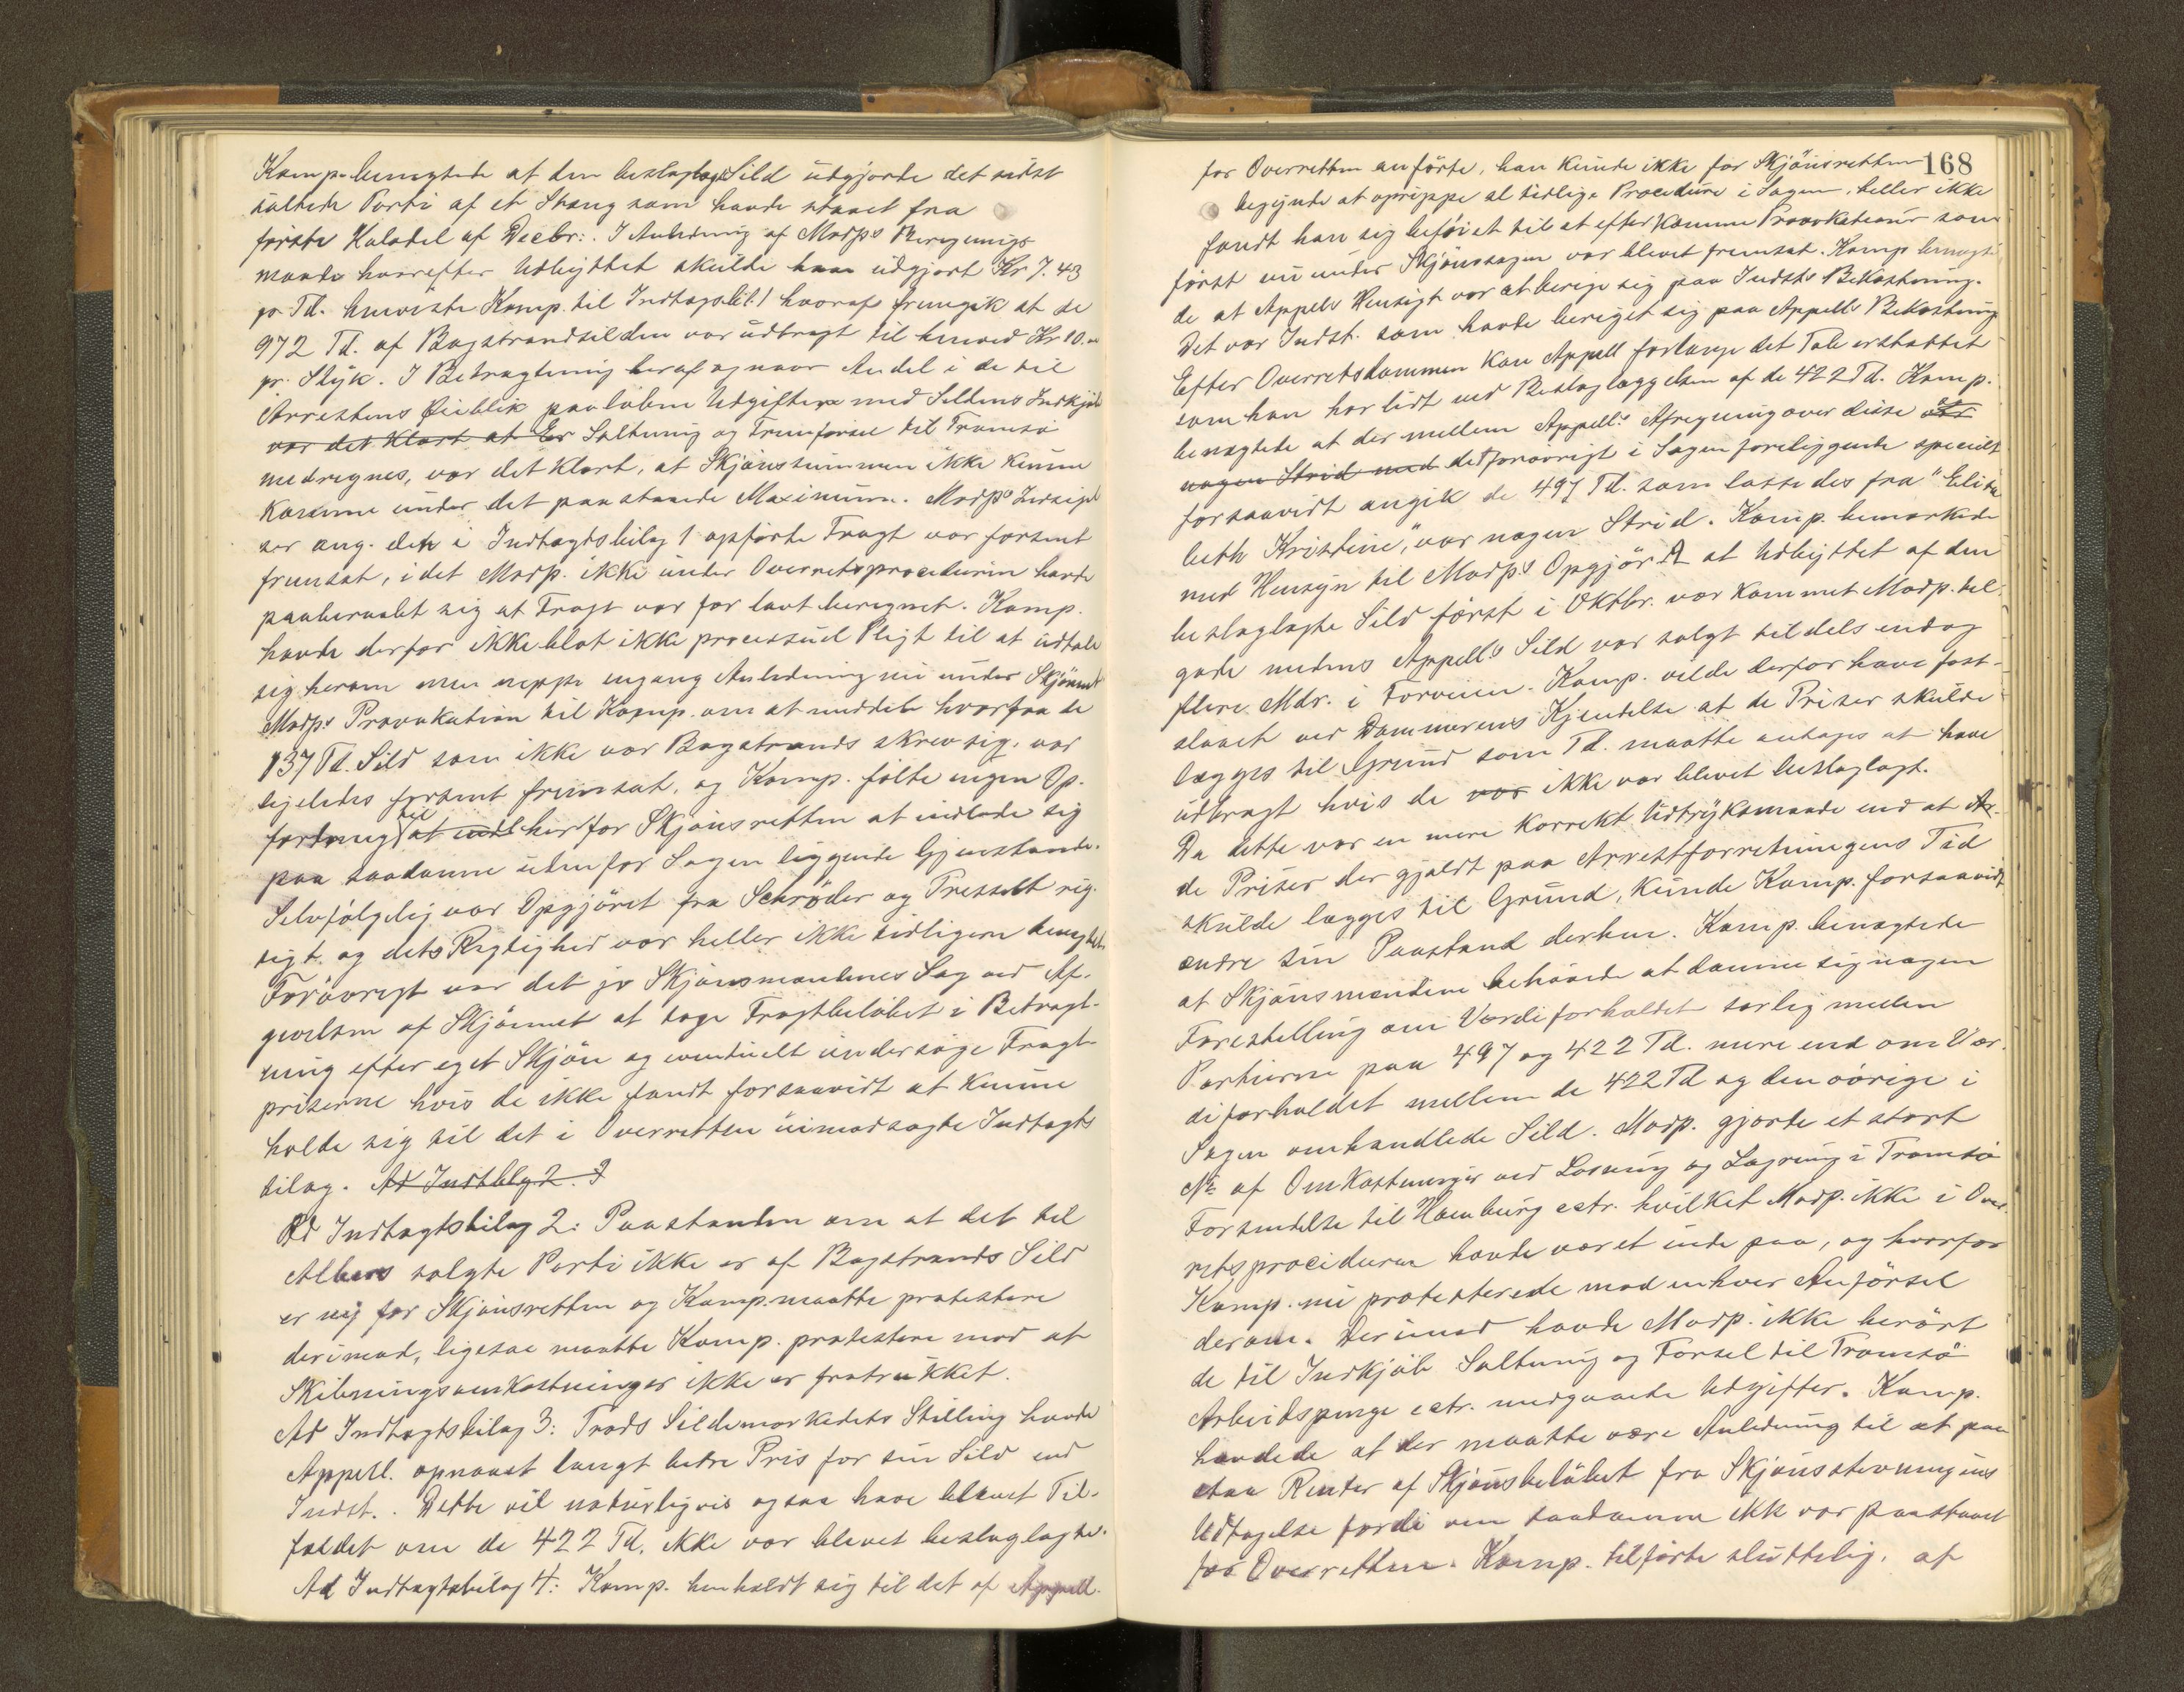 Komp. benegtede at den beslaglagte Sild udgjorde det sidst
saltede Parti af et Stæng som havde staaet fra
første Halvdel af Decbr:. I Anledning af Modps Beregnings-
maade hvorefter Udbyttet skulde have udgjort Kr 7.43
pr Td. henviste Komp. til Indtægtsbil. 1 hvoraf fremgik at de
972 Td. af Bagstrandsilden var udbragt til henved Kr 10.
pr. Styk. I Betragtning heraf og naar Andel i de til
Arrestens Øieblik paaløbne Udgifter med Sildens Indkjøb
var det klart at Er Saltning og Fremførsel til Tromsø
medregnes, var det klart, at Skjønssummen ikke kunne
komme under det paastaaede Maximum. Modps Indsigel
ser ang. den i Indtægtsbilag 1 opførte Fragt var forsent
fremsat, idet Modp. ikke under Overretsproceduren havde
paaberaabt sig at Fragt var for lavt beregnet. Komp.
havde derfor ikke blot ikke processuel Pligt til at udtale
sig herom men neppe engang Anledning nu under Skjønnet
Modps Provokation til Komp. om at meddele hvorfra de
137 Td. Sild som ikke var Bagstrands skrev sig, var
ligeledes forsent fremsat, og Komp. følte ingen Op-
fordring til at indl her for Skjønsretten at indlade sig
paa saadanne udenfor Sagen liggende Gjenstande.
Selvfølgelig var Opgjøret fra Schrøder og Presset rig-
tigt. og dets Rigtighed var heller ikke tidligere benegtet.
Forøvrigt var det jo Skjønsmændenes Sag ved Af-
givelsen af Skjønnet at tage Fragtbeløbet i Betragt-
ning efter eget Skjøn og eventuelt undersøge Fragt-
priserne hvis de ikke fandt forsaavidt at kunne
holde sig til det i Overretten uimodsagte Indtægts
bilag. Ad Indtblg 2. I
Ad Indtægtsbilag 2: Paastanden om at det til
Albers solgte Parti ikke er af Bagstrands Sild
er ny for Skjønsretten og Komp. maatte protestere
derimod, ligesaa maatte Komp. protestere mod at
Skibningsomkostninger ikke er fratrukket.
Ad Indtægtsbilag 3: Trods Sildemarkedets Stilling havde
Appell. opnaaet langt bedre Pris for sin Sild end
Indst.. Dette vil naturligvis ogsaa have blevet Til-
fældet om de 422 Td. ikke var blevet beslaglagte.
Ad Indtægtsbilag 4: Komp. henholdt sig til det af Appell.
168
for Overretten anførte, han kunde ikke for Skjønsretten
begynde at oprippe al tidlige Procedure i Sagen, heller ikke
fandt han sig beføiet til at efterkomme Provokationer som
først nu under Skjønssagen var blevet fremsat. Komp benegte
de at Appells Hensigt var at berige sig paa Indsts Bekostning.
Det var Indst. som havde beriget sig paa Appells Bekostning
Efter Overretsdommen kan Appell forlange det Tab erstattet
som han har lidt ved Beslaglæggelsen af de 422 Td. Komp.
benegtede at der mellem Appell's Afregning over disse
nogen Strid med det forøvrigt i Sagen foreliggende specielt
forsaavidt angik de 497 Td. som lossedes fra "Elisa
beth Kristine", var nogen Strid. Komp. bemærkede
med Hensyn til Modps Opgjør A at Udbyttet af den
beslaglagte Sild først i Oktbr. var kommet Modp. til
gode medens Appells Sild var solgt tildels endog
flere Mdr. i Forveien. Komp. vilde derfor have fast-
slaaet ved Dommerens Kjendelse at de Priser skulde
lægges til Grund som Td. maatte antages at have
udbragt hvis de var ikke var blevet beslaglagt.
Da dette var en mere korrekt Udtryksmaade end at Ar-
de Priser der gjaldt paa Arrestforretningens Tid
skulde lægges til Grund, kunde Komp. forsaavidt
ændre sin Paastand derhen. Komp. benegtede
at Skjønsmændene behøvede at danne sig nogen
Forestilling om Værdiforholdet særlig mellem
Partierne paa 497 og 422 Td. mere end om Vær-
diforholdet mellem de 422 Td og den øvrige i
Sagen omhandlede Sild. Modp. gjorde et stort
No af Omkostninger ved Losning og Lagring i Tromsø
Forsendelse til Hamburg ectr. hvilket Modp. ikke i Over-
retsproceduren havde været inde paa, og hvorfor
Komp. nu protesterede mod enhver Anførsel
derom. Derimod havde Modp. ikke berørt
de til Indkjøb Saltning og Førsel til Tromsø
Arbeidspenge ectr. medgaaede Udgifter. Komp.
havdede at der maatte være Anledning til at paa
staa Renter af Skjønsbeløbet fra Skjønsstevningens
Udtagelse fordi om saadanne ikk var paastaaet
for Overretten. Komp. tilførte sluttelig, at